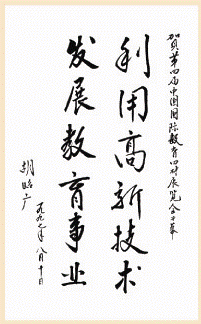 贺第四届中国国际教育器材展览会开幕
利用高新技术
发展教育事业
胡昭广
一九九七年八月十日